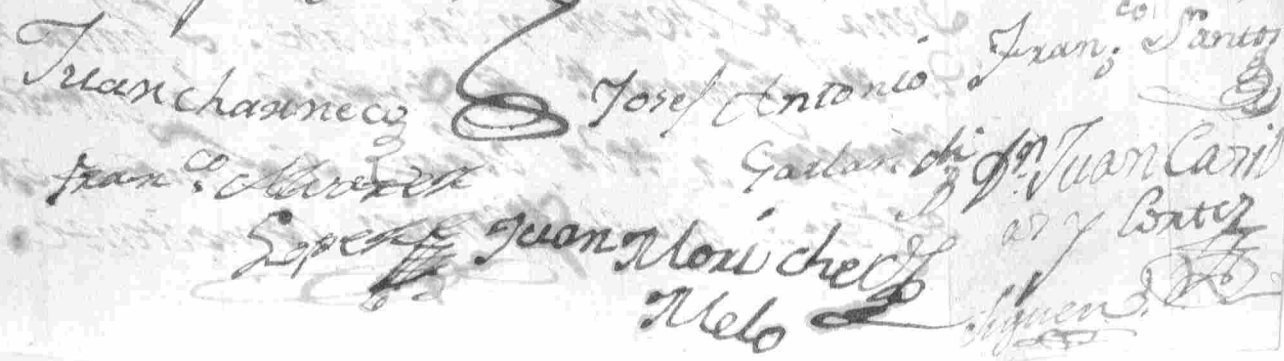 Juan charneco
Josef Antonio
Gailan
Fran.co Santos
Fran.co Alvarez
Lopez
Juan Mori chec
Melo
Dn. Juan Caril
y Cortez
Siguen